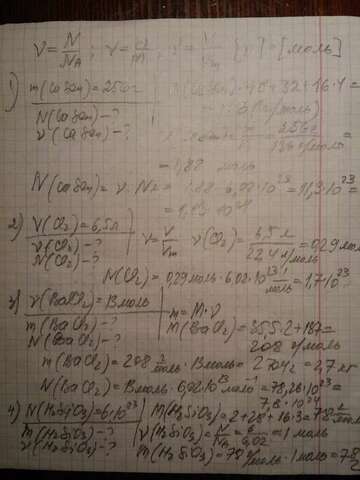 ν = N/Nₐ ; ν = m/M ; ν = V/Vm [ν] = [моль]
1) m(CaSO₄) = 256г
M(CaSO₄) = 40 + 32 + 16·4 =
N(CaSO₄) - ?
ν(CaSO₄) - ?
= 1,88 моль
N(CaSO₄) = ν · Nₐ = 1,88 · 6,02 · 10²³ = 11,3 · 10²³
= 1,13 · 10²⁴
2) V(Cl₂) = 6,5л
ν(Cl₂) - ?
N(Cl₂) - ?
ν = V/Vm ν(Cl₂) = 6,5 л / 22,4 л/моль = 0,29 моль
N(Cl₂) = 0,29 моль · 6,02 · 10²³ 1/моль = 1,7 · 10²³
3) ν(BaCl₂) = 13 моль
m(BaCl₂) - ?
N(BaCl₂) - ?
m = M · ν
M(BaCl₂) = 35,5 · 2 + 137 =
208 г/моль
m(BaCl₂) = 208 г/моль · 13 моль = 2704г = 2,7 кг
N(BaCl₂) = 13 моль · 6,02 · 10²³ 1/моль = 78,26 · 10²³ =
7,8 · 10²⁴
4) N(H₂SiO₃) = 6 · 10²³
m(H₂SiO₃) - ?
ν(H₂SiO₃) - ?
M(H₂SiO₃) = 2 + 28 + 16 · 3 = 78 г/моль
ν(H₂SiO₃) = N/Nₐ = 6/6,02 = 1 моль
m(H₂SiO₃) = 78 г/моль · 1 моль = 78